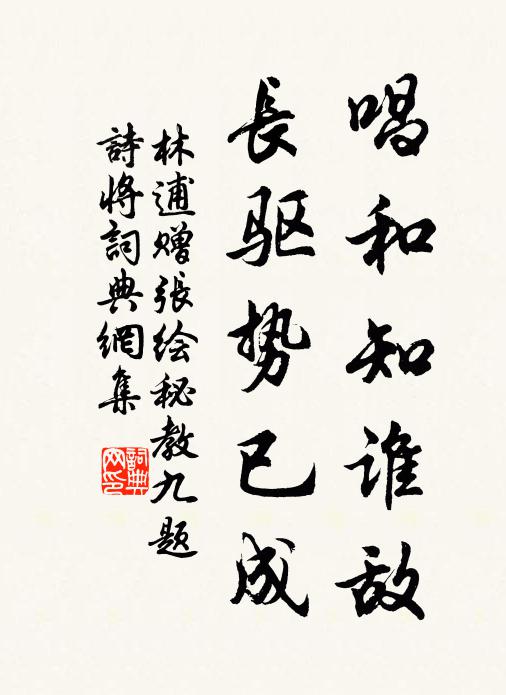 唱和知谁敌
長驱势已成
林逋赠張绘秘教九题
詩将詞典網集
詞典网印